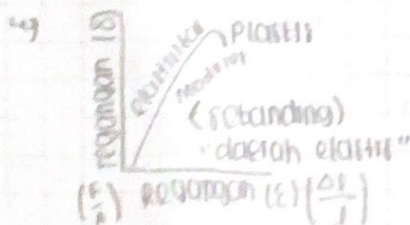 regangan (δ)
Elastisitas
Plastis
Modulus
(sebanding)
"daerah elastis"
(F/A) Regangan (ε) (Δl/l)